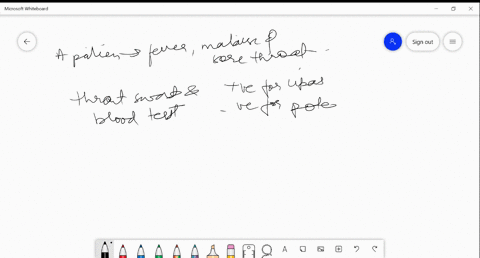 Microsoft Whiteboard
Sign out
A patien → fever, malaise &
sore throat
throat swab &
blood test
+ve for
-ve for